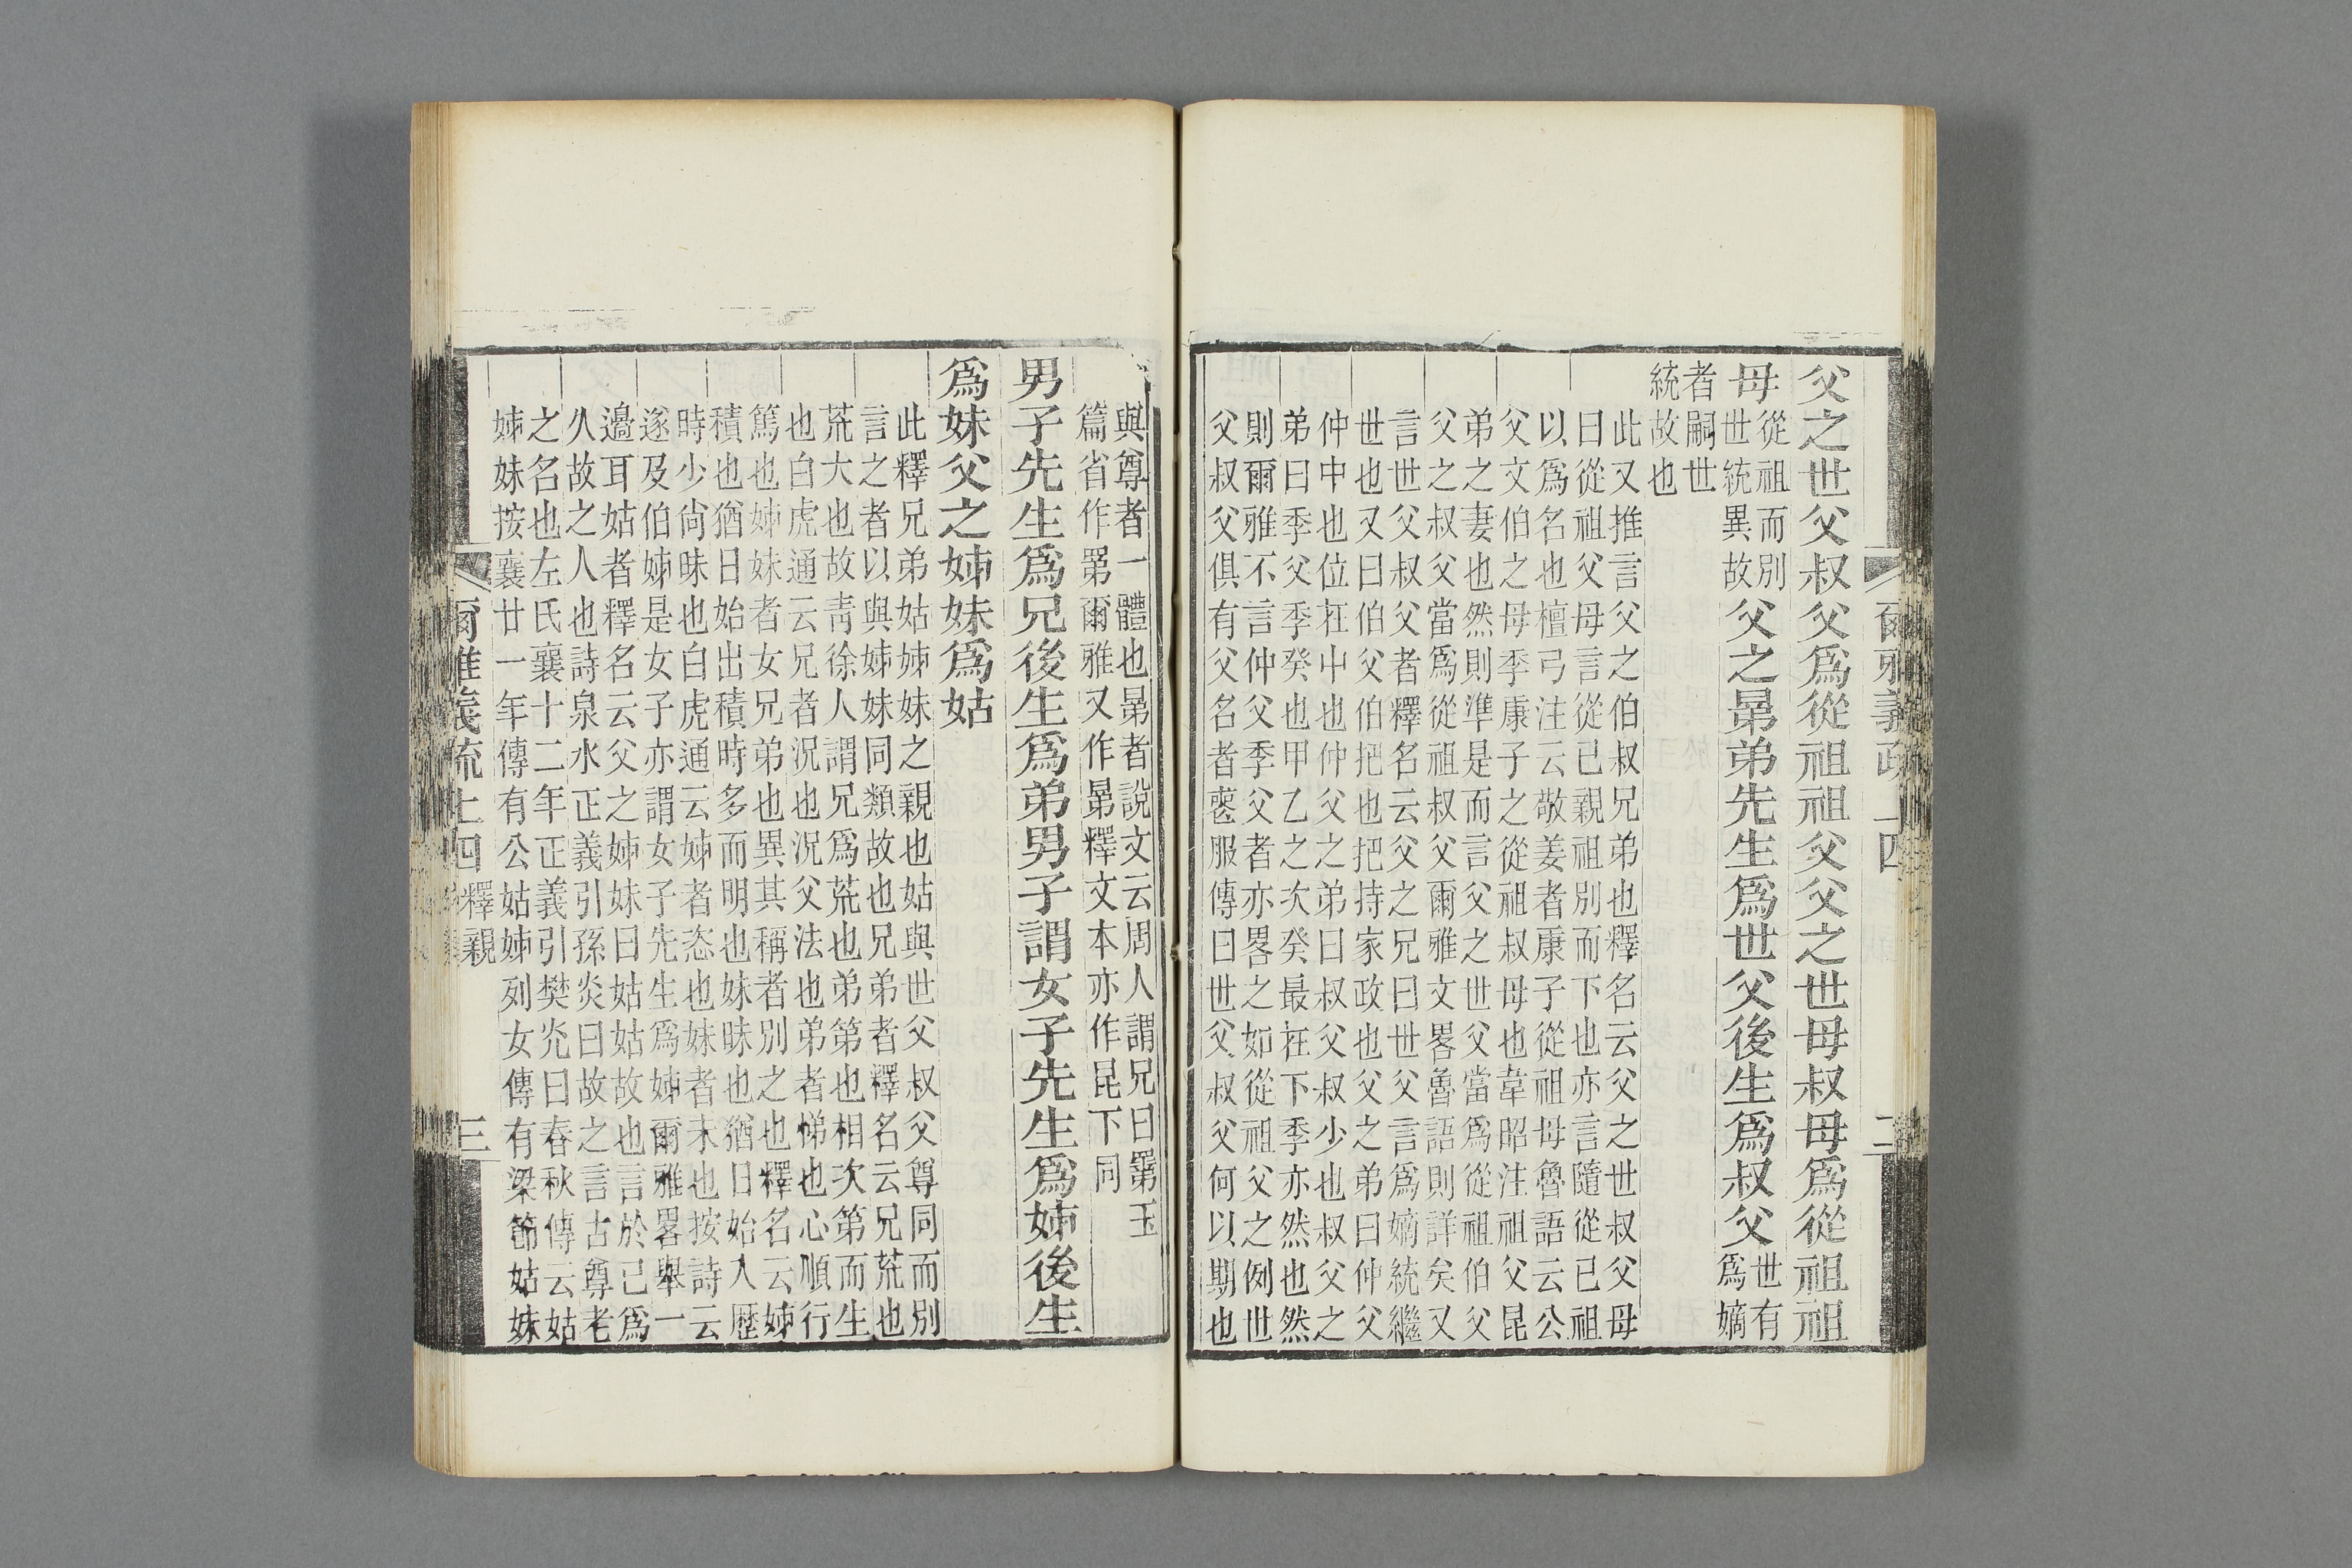 爾雅義疏 上四 二
父之世父叔父爲從祖祖父父之世母叔母爲從祖祖
母從祖而別世統異故父之晜弟先生爲世父後生爲叔父世有爲嫡
者嗣世統故也
此又推言父之伯叔兄弟也釋名云父之世叔父母
曰從祖父母言從已親祖別而下也亦言隨從已祖
以爲名也檀弓注云敬姜者康子從祖母魯語云公
父文伯之母季康子之從祖叔母也韋昭注祖父昆
弟之妻也然則準是而言父之世父當爲從祖伯父
父之叔父當爲從祖叔父爾雅文畧魯語則詳矣又
言世父叔父者釋名云父之兄曰世父言爲嫡統繼
世也又曰伯父伯把也把持家政也父之弟曰仲父
仲中也位在中也仲父之弟曰叔父叔少也叔父之
弟曰季父季癸也甲乙之次癸最在下季亦然也然
則爾雅不言仲父季父者亦畧之如從祖父之例世
父叔父俱有父名者喪服傳曰世父叔父何以期也
與尊者一體也晜者說文云周人謂兄曰罤玉
篇省作罤爾雅又作晜釋文本亦作昆下同
男子先生爲兄後生爲弟男子謂女子先生爲姊後生
爲妹父之姊妹爲姑
此釋兄弟姑姊妹之親也姑與世父叔父尊同而別
言之者以與姊妹同類故也兄弟者釋名云兄荒也
荒大也故靑徐人謂兄爲荒也弟第也相次第而生
也白虎通云兄者況也況父法也弟者悌也心順行
篤也姊妹者女兄弟也異其稱者別之也釋名云姊
積也猶日始出積時多而明也妹昧也猶日始入歷
時少尙昧也白虎通云姊者恣也妹者末也按詩云
遂及伯姊是女子亦謂女子先生爲姊爾雅畧舉一
邊耳姑者釋名云父之姊妹曰姑姑故也言於已爲
久故之人也詩泉水正義引孫炎曰故之言古尊老
之名也左氏襄十二年正義引樊光曰春秋傳云姑
姊妹按襄廿一年傳有公姑姊列女傳有梁節姑妹
爾雅義疏 上四 釋親 三